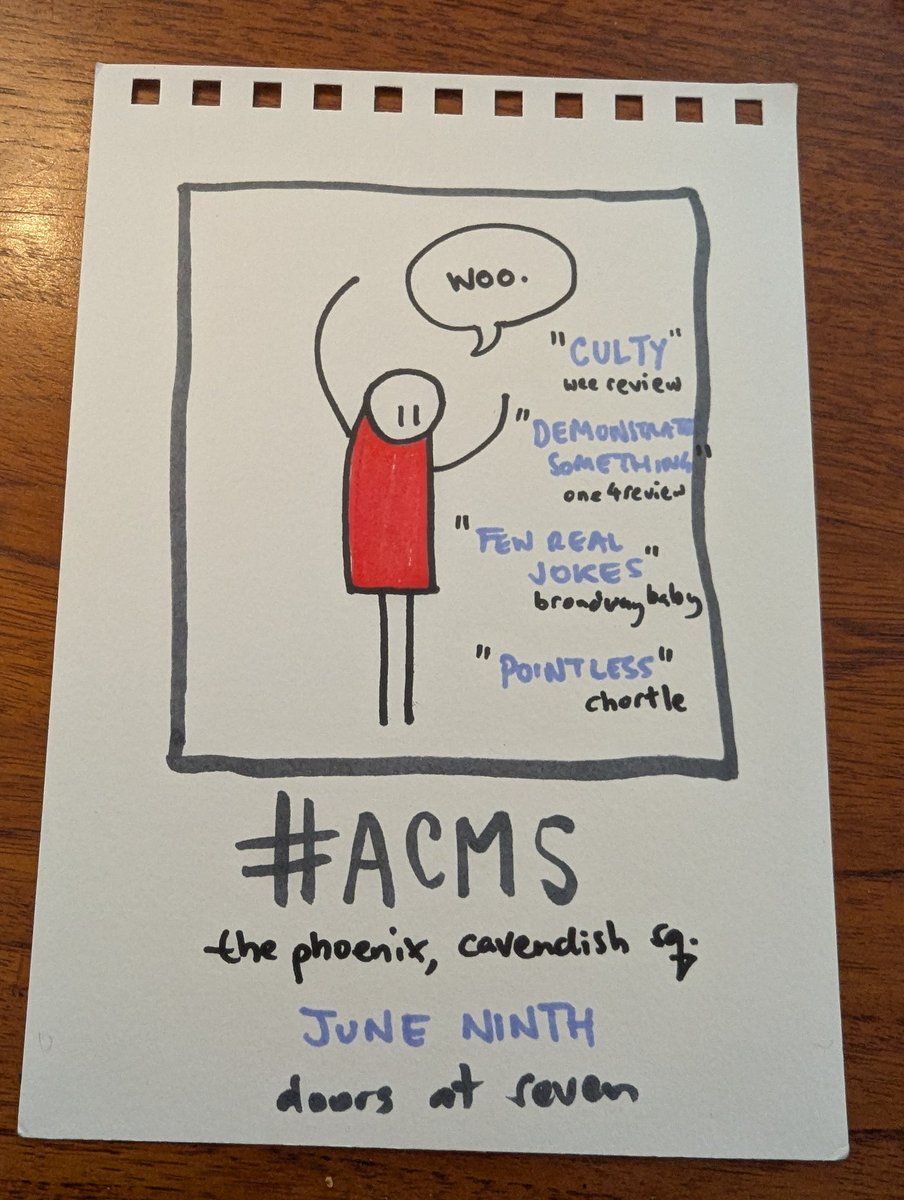 WOO.
"CULTY"
wee review
"DEMONSTRATE
SOMETHING"
one4review
"FEW REAL
JOKES"
broadway baby
"POINTLESS"
chortle
#ACMS
the phoenix, cavendish sq.
JUNE NINTH
doors at seven